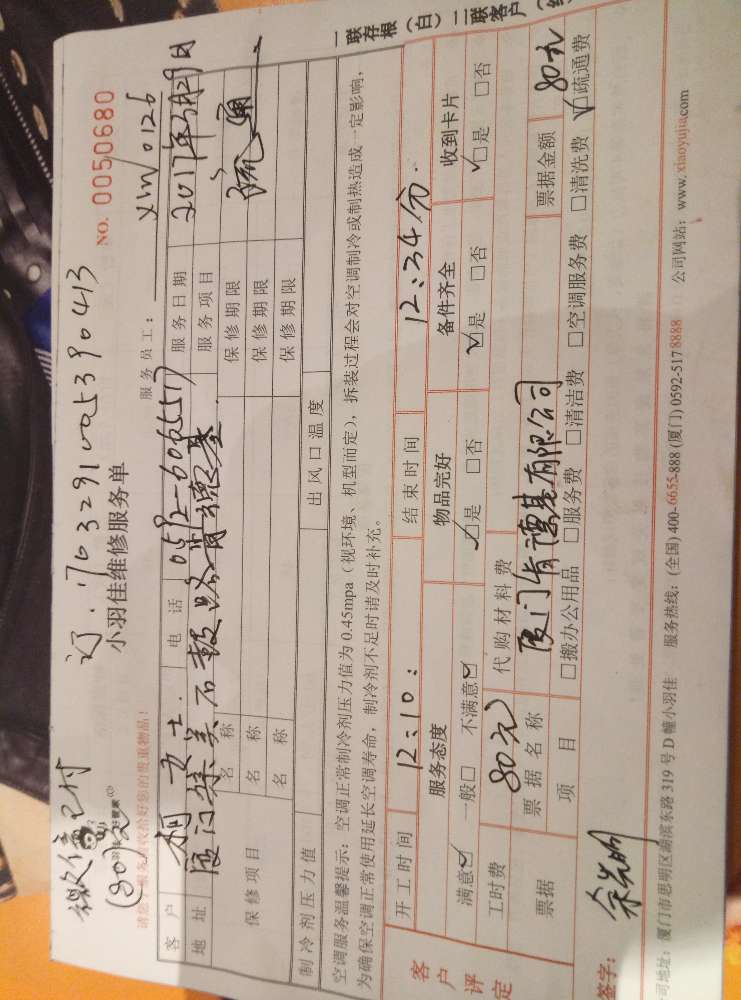 一联存根（白）二联客户（
NO. 0050680
微信已付
小羽佳维修服务单
服务员工： XLW0126
客户 女士 电话 0592-6065517 服务日期 2017年3月29日
地址 厦门集美石鼓路肯德基 服务项目 疏通
保修项目 名称 保修期限
名称 保修期限
名称 保修期限
制冷剂压力值 出风口温度
空调服务温馨提示：空调正常制冷剂压力值为0.45mpa（视环境、机型而定），拆装过程会对空调制冷或制热造成一定影响，
为确保空调正常使用延长空调寿命，制冷剂不足时请及时补充。
客户评定
开工时间 12:10: 结束时间 12:34分.
服务态度 物品完好 备件齐全 收到卡片
满意☑ 一般□ 不满意☑ ☑是 □否 ☑是 □否 ☑是 □否
工时费 80元 代购材料费
票据 票据名称 厦门肯德基有限公司 票据金额 80元
项目 □搬办公用品 □服务费 □清洁费 □空调服务费 □清洗费 ☑疏通费
签字：
司地址：厦门市思明区湖滨东路319号D幢小羽佳 服务热线：(全国) 400-6655-888 (厦门) 0592-517 8888 公司网站：www.xiaoyujia.com